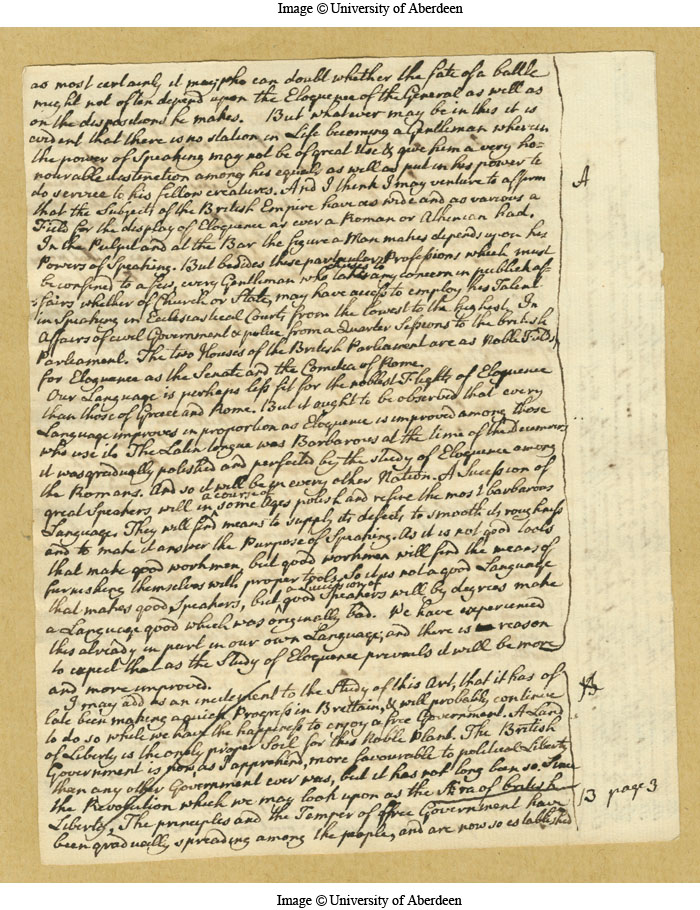 Image © University of Aberdeen
as most certainly it may, who can doubt whether the fate of a battle
might not often depend upon the Eloquence of the General as well as
on the dispositions he makes. But whatever may be in this it is
evident that there is no station in Life becoming a Gentleman wherein
the power of Speaking may not be of great Use & give him a very ho-
nourable distinction among his equals as well as put in his power to
do service to his fellow creatures. And I think I may venture to affirm
that the Subjects of the British Empire have as wide and as various a
Field for the display of Eloquence as ever a Roman or Athenian had.
In the Pulpit and at the Bar the figure a Man makes depends upon his
Powers of Speaking. But besides these particular Professions which must
be confined to a few, every Gentleman who takes any concern in publick af-
fairs whether of Church or State, may have access to employ his Talent
in Speaking in Ecclesiastical Courts from the lowest to the highest, In
Affairs of civil Government & police from a Quarter Sessions to the british
Parliament. The two Houses of the British Parliament are as Noble Fields
for Eloquence as the Senate and the Comitia of Rome.
Our Language is perhaps less fit for the noblest Flights of Eloquence
than those of Greece and Rome. But it ought to be observed that every
Language improves in proportion as Eloquence is improved among those
who use it. The Latin tongue was Barbarous at the time of the Decemvirs
it was gradually polished and perfected by the study of Eloquence among
the Romans. And so it will be in every other Nation. A Succession of
great Speakers will in a course of some Ages polish and refine the most barbarous
Language. They will find means to supply its defects to smooth its roughness
and to make it answer the Purpose of Speaking. As it is not good tools
that make good workmen, but good workmen will find the means of
furnishing themselves with proper tools, So it is not a good Language
that makes good Speakers, but a Succession of good Speakers will by degrees make
a Language good which was originally bad. We have experienced
this already in part in our own Language, and there is reason
to expect that as the Study of Eloquence prevails it will be more
and more improved.
I may add as an incitement to the Study of this Art, that it has of
late been making a quick Progress in Brittain, & will probably continue
to do so while we have the happiness to enjoy a free Government. A Land
of Liberty is the only proper Soil for this Noble Plant. The British
Government is now, as I apprehend, more favourable to political Liberty
than any other Government ever was, but it has not long been so. Since
the Revolution which we may look upon as the Æra of british
Liberty, The principles and the Temper of free Government have
been gradually spreading among the people, and are now so established
A
A
13 page 3
Image © University of Aberdeen